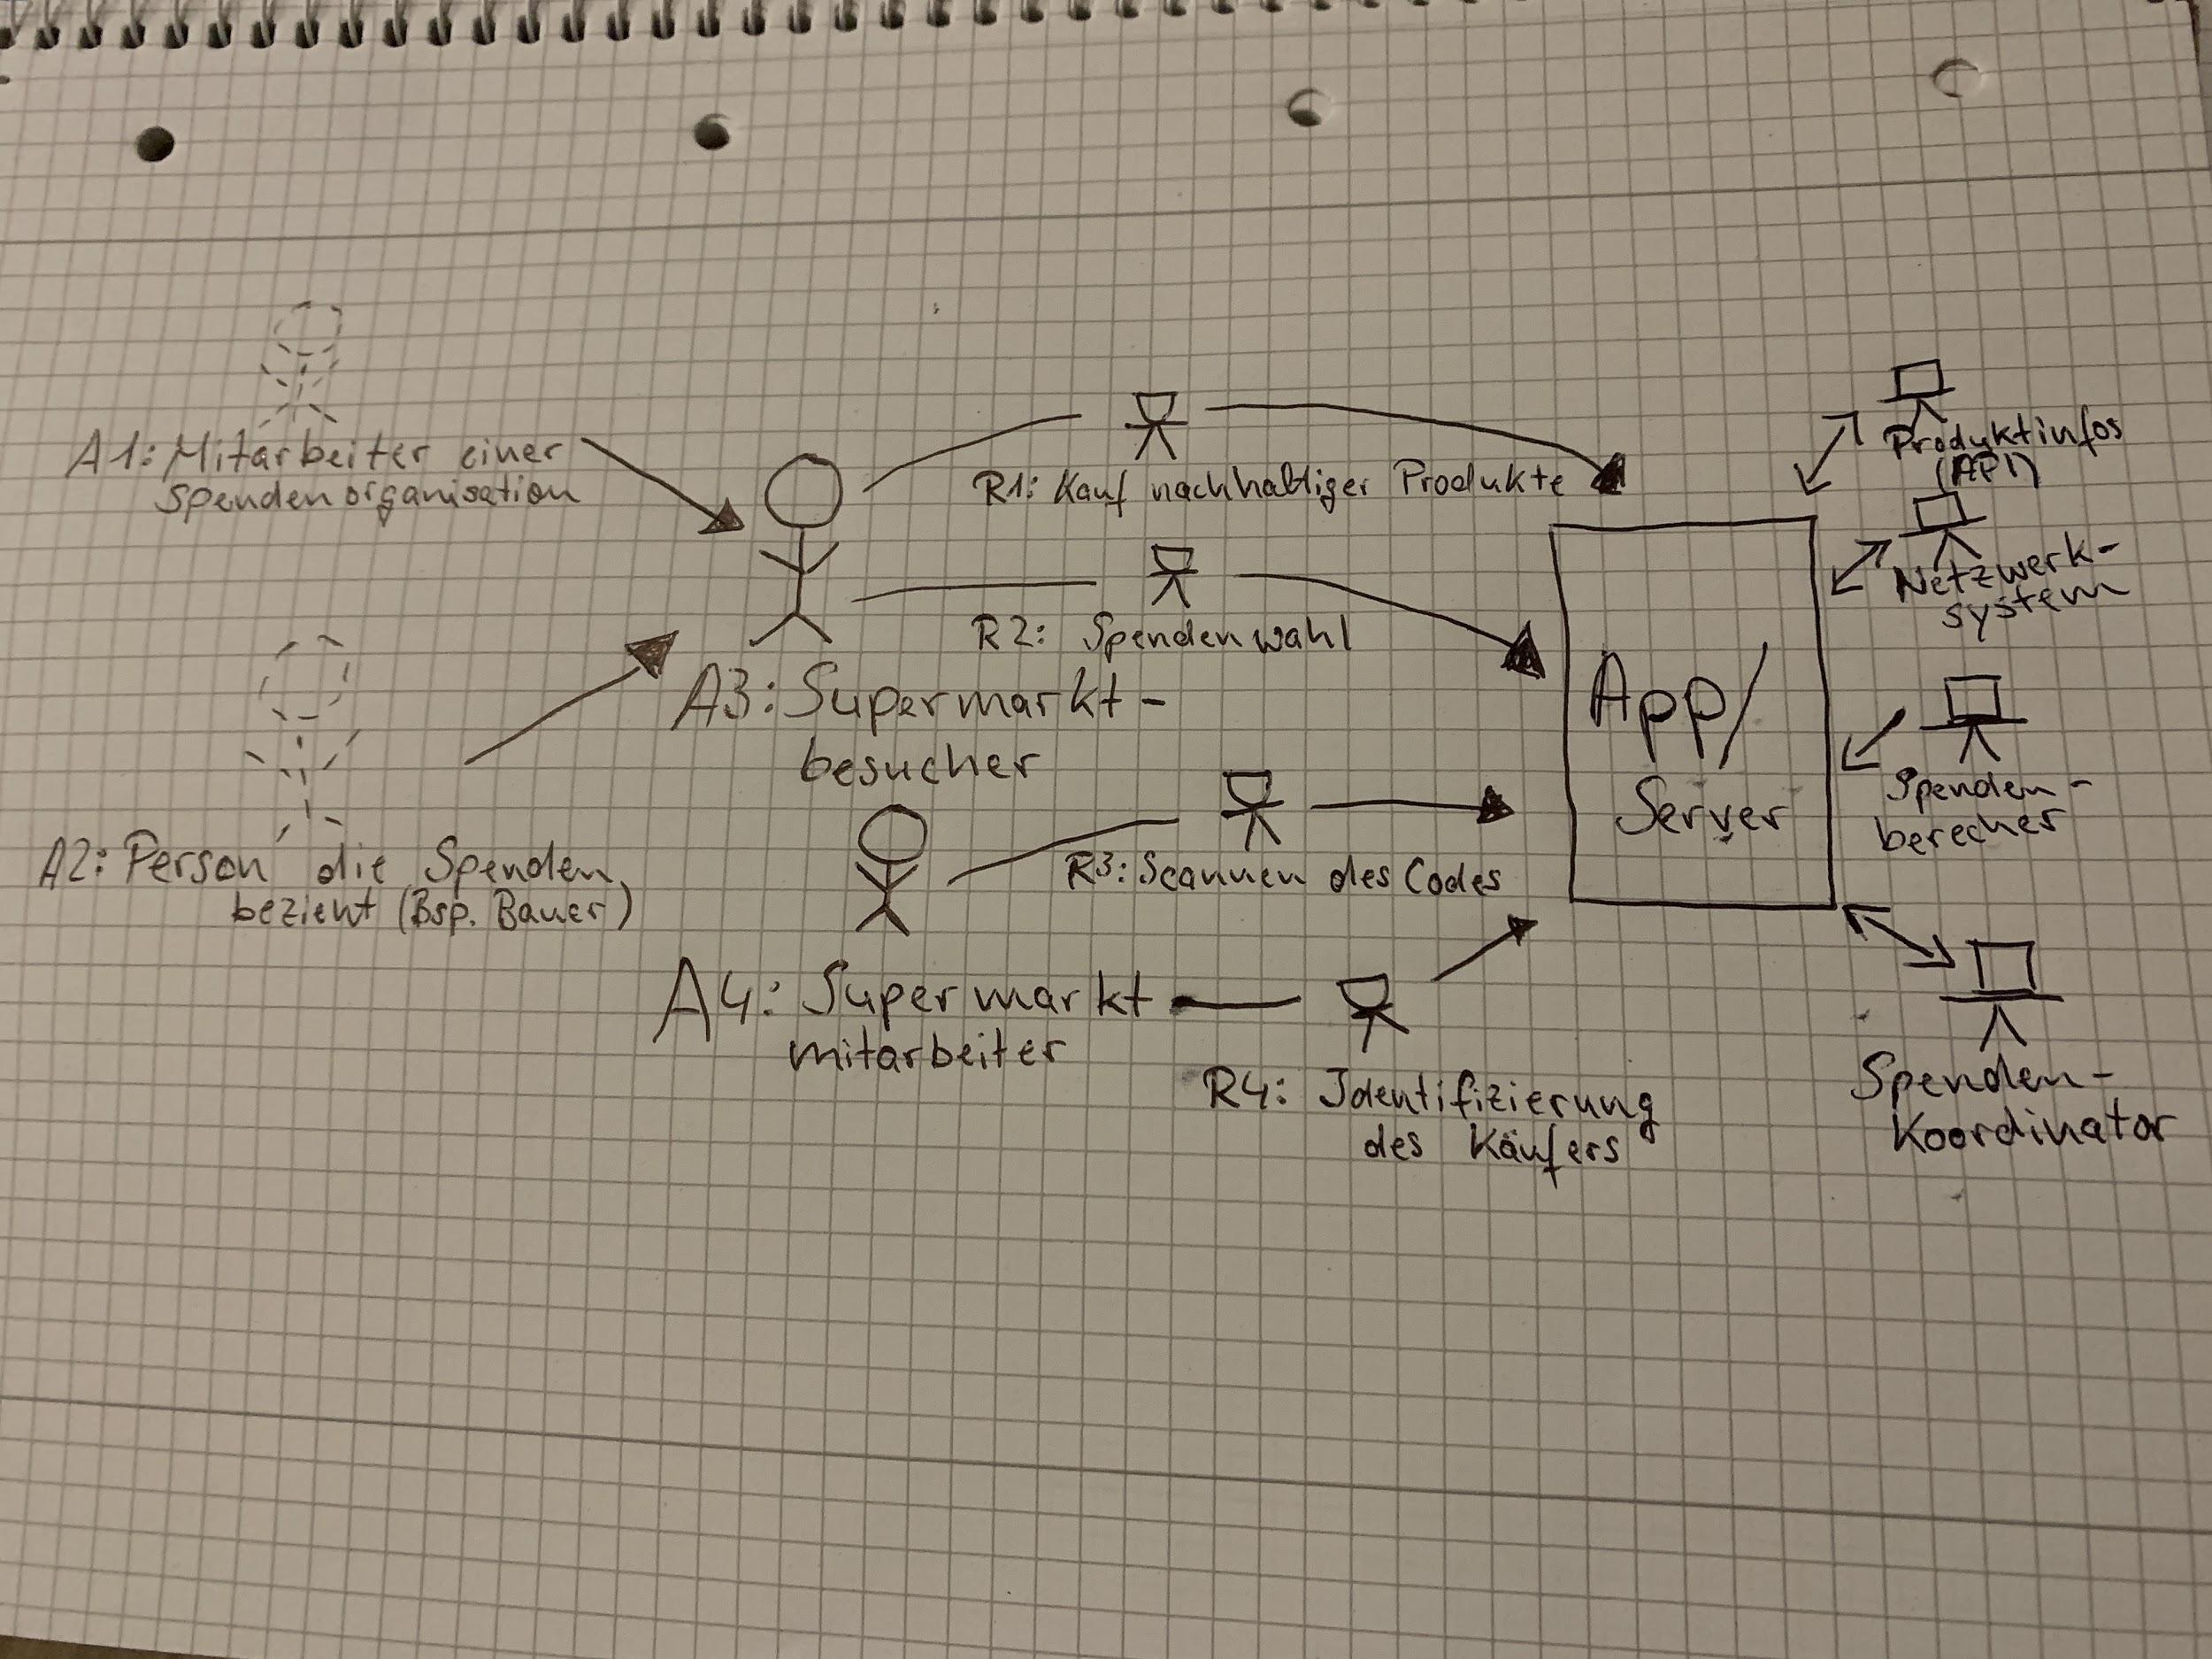 A1: Mitarbeiter einer
Spendenorganisation
R1: Kauf nachhaltiger Produkte
Produktinfos
(API)
Netzwerk-
system
R2: Spendenwahl
A3: Supermarkt-
besucher
App/
Server
Spenden-
berecher
A2: Person die Spenden
bezieht (Bsp. Bauer)
R3: Scannen des Codes
A4: Supermarkt
mitarbeiter
R4: Identifizierung
des Käufers
Spenden-
Koordinator